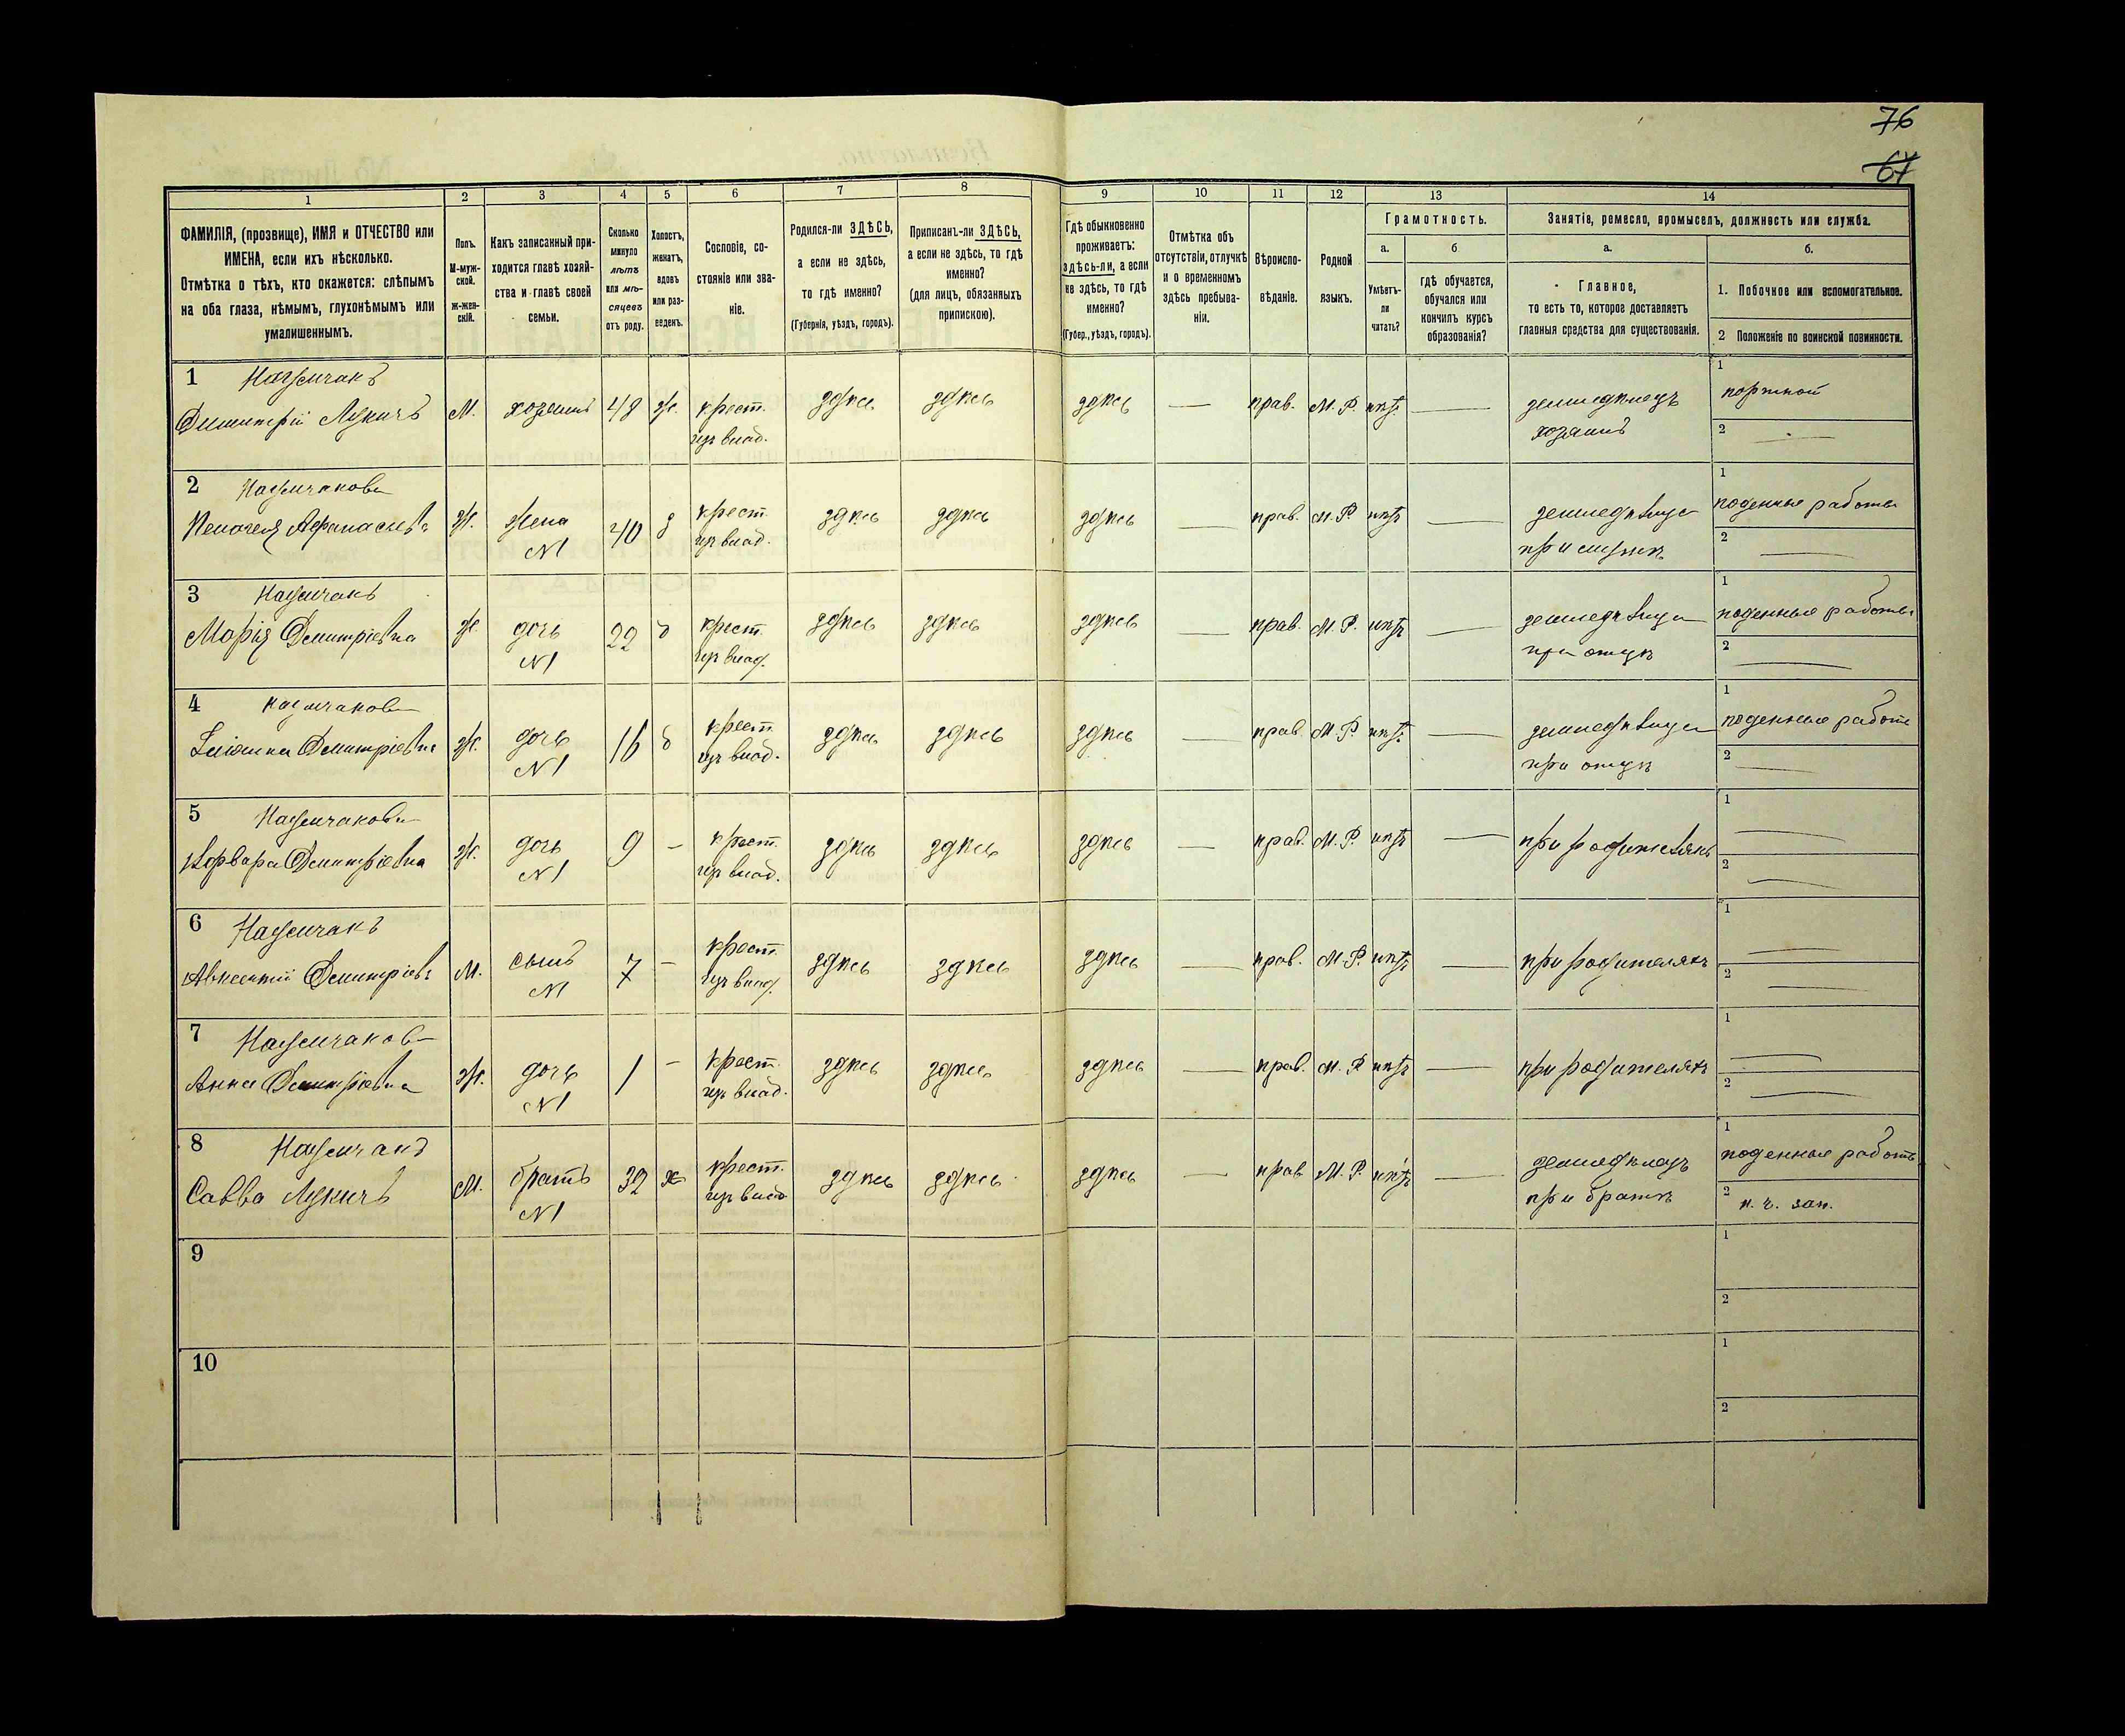 76
67
1
2
3
4
5
6
7
8
9
10
11
12
13
14
ФАМИЛІЯ, (прозвище), ИМЯ и ОТЧЕСТВО или
ИМЕНА, если ихъ нѣсколько.
Отмѣтка о тѣхъ, кто окажется: слѣпымъ
на оба глаза, нѣмымъ, глухонѣмымъ или
умалишеннымъ.
Полъ.
М-муж-
ской.
ж-жен-
скій.
Какъ записанный при-
ходится главѣ хозяй-
ства и главѣ своей
семьи.
Сколько
минуло
лѣтъ
или мѣ-
сяцевъ
отъ роду.
Холостъ,
женатъ,
вдовъ
или раз-
веденъ.
Сословіе, со-
стояніе или зва-
ніе.
Родился-ли ЗДѢСЬ,
а если не здѣсь,
то гдѣ именно?
(Губернія, уѣздъ, городъ).
Приписанъ-ли ЗДѢСЬ,
а если не здѣсь, то гдѣ
именно?
(для лицъ, обязанныхъ
припискою).
Гдѣ обыкновенно
проживаетъ:
здѣсь-ли, а если
не здѣсь, то гдѣ
именно?
(Губер., уѣздъ, городъ).
Отмѣтка объ
отсутствіи, отлучкѣ
и о временномъ
здѣсь пребыва-
ніи.
Вѣроиспо-
вѣданіе.
Родной
языкъ.
Грамотность.
а.
б
Умѣетъ-
ли
читать?
гдѣ обучается,
обучался или
кончилъ курсъ
образованія?
Занятіе, ремесло, промыселъ, должность или служба.
а.
б.
Главное,
то есть то, которое доставляетъ
главныя средства для существованія.
1. Побочное или вспомогательное.
2 Положеніе по воинской повинности.
1
Димитрій Лукичъ М. хозяинъ 48 ж. крест. здѣсь здѣсь здѣсь — прав. М. Р. нѣтъ — земледѣлецъ
изъ влад. хозяинъ
1 портной
2 —
2
Пелагея Афанасьева ж. жена 40 з крест. здѣсь здѣсь здѣсь — прав. М. Р. нѣтъ — земледѣлица
N1 изъ влад. при мужѣ
1 поденные работы
2 —
3
Марія Димитріевна ж. дочь 22 д крест. здѣсь здѣсь здѣсь — прав. М. Р. нѣтъ — земледѣлица
N1 изъ влад. при отцѣ
1 поденные работы
2 —
4
Димитріевна ж. дочь 16 д крест. здѣсь здѣсь здѣсь — прав. М. Р. нѣтъ — земледѣлица
N1 изъ влад. при отцѣ
1 поденные работы
2 —
5
Варвара Димитріевна ж. дочь 9 - крест. здѣсь здѣсь здѣсь — прав. М. Р. нѣтъ — при родителяхъ
N1 изъ влад.
1 —
2 —
6
Авксентій Димитріевъ М. сынъ 7 - крест. здѣсь здѣсь здѣсь — прав. М. Р. нѣтъ — при родителяхъ
N1 изъ влад.
1 —
2 —
7
Анна Димитріевна ж. дочь 1 - крест. здѣсь здѣсь здѣсь — прав. М. Р. нѣтъ — при родителяхъ
N1 изъ влад.
1 —
2 —
8
Савва Лукичъ М. братъ 32 х крест. здѣсь здѣсь здѣсь — прав М. Р. нѣтъ — земледѣлецъ
N1 изъ влад при братѣ
1 поденные работы
2 н. ч. зап.
9
1
2
10
1
2